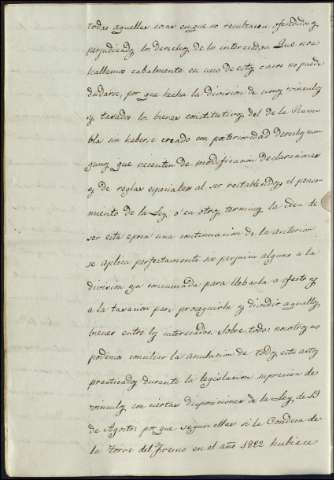 todas aquellas cosas en que no resultasen ofendidos y
perjudicados los derechos de los interesados. Que nos
hallemos cabalmente en uno de estos casos no puede
dudarse, por que hecha la division de unos vinculos
y tasados los bienes constitutivos del de la Puebla
sin haberse creado con posterioridad derechos
que necesiten de modificacion declaraciones
y de reglas especiales al ser restablecidos el pensamiento
de la Ley, o en otros terminos la idea de
ser esta epoca una continuacion de la anterior
se aplica perfectamente sin perjuicio alguno a la
division ya comenzada para llevarla a efecto y
a la tasacion para proseguirla y dividir aquellos
bienes entre los interesados. Sobre todo nosotros no
podemos conciliar la anulacion de todos estos actos
practicados durante la legislacion supresiva de
vinculos con ciertas disposiciones de la Ley, de 19
de Agosto, por que segun ellas si la Condesa de
la Torre del Fresno en el año 1822 hubiese